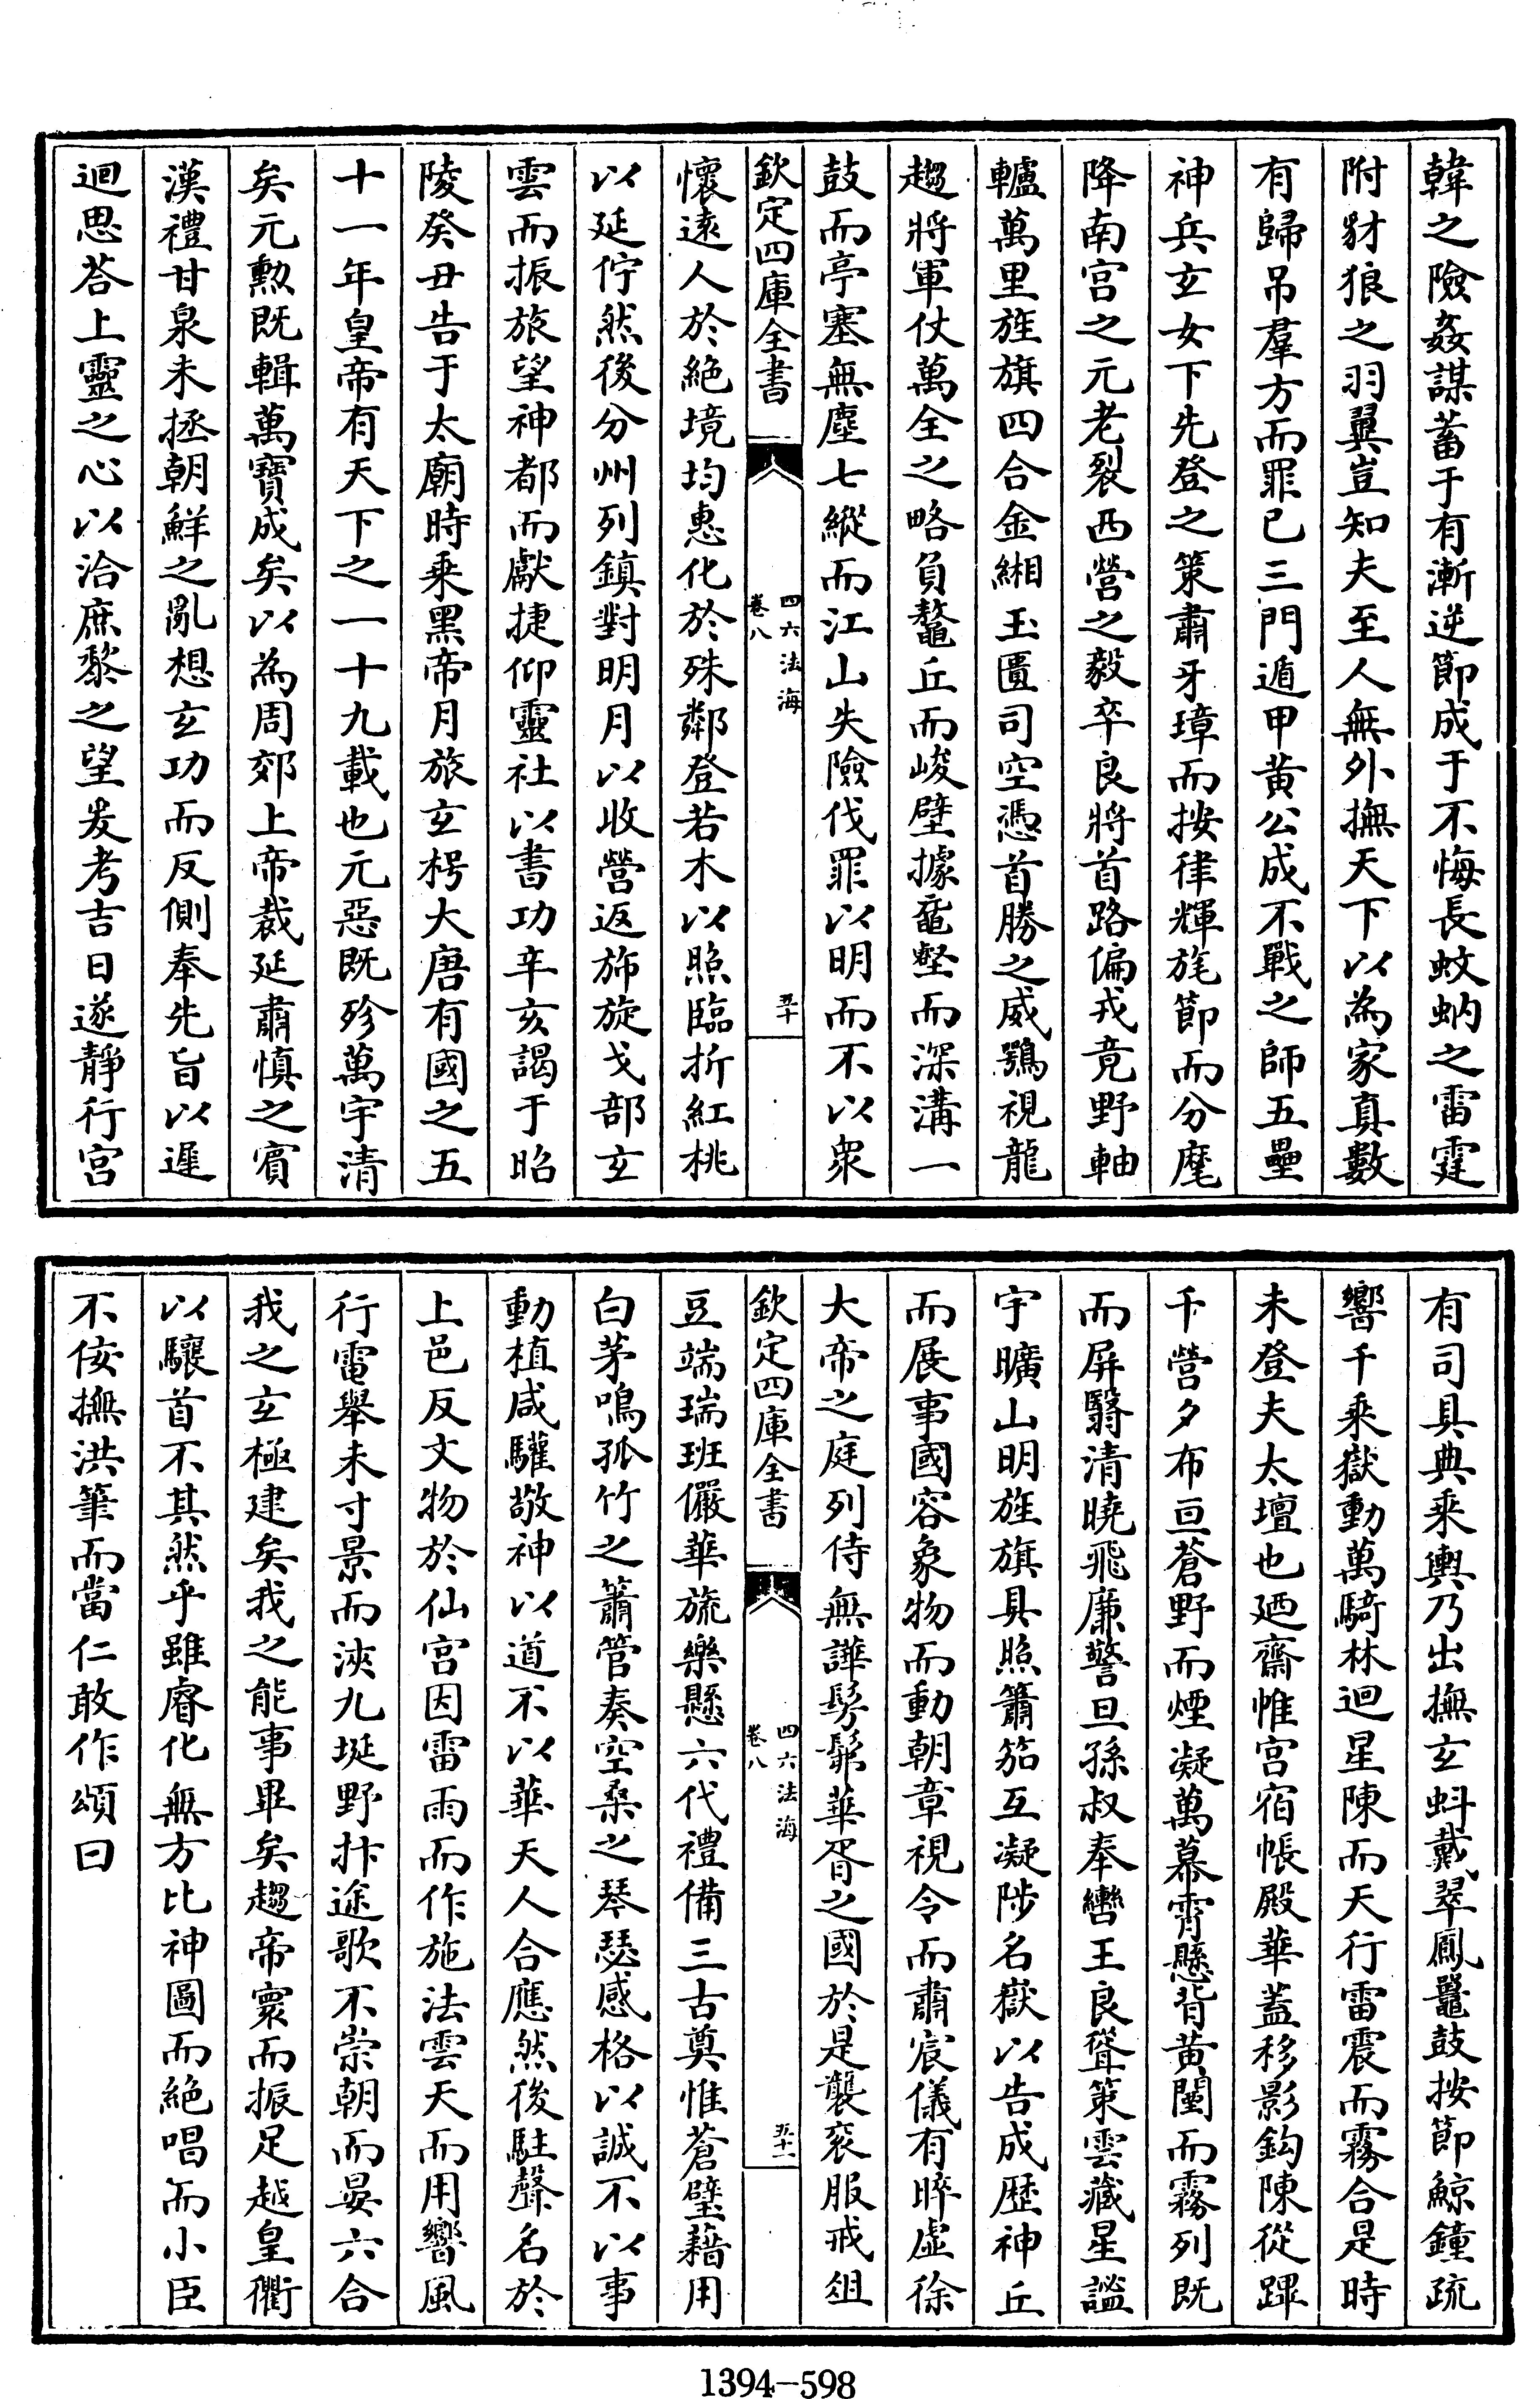 韓之險姦謀蓄于有漸逆節成于不悔長蚊蚋之雷霆
附豺狼之羽翼豈知夫至人無外撫天下以為家真數
有歸吊羣方而罪已三門遁甲黄公成不戰之師五壘
神兵玄女下先登之策肅牙璋而按律輝旄節而分麾
降南宫之元老裂西營之毅卒良將首路偏戎竟野軸
轤萬里旌旗四合金緗玉匱司空憑首勝之威鶚視龍
趨將軍仗萬全之略負鼇丘而峻壁據黿壑而深溝一
鼓而亭塞無塵七縱而江山失險伐罪以明而不以衆
欽定四庫全書
四六法海
卷八
五十
懷遠人於絶境均惠化於殊鄰登若木以照臨折紅桃
以延佇然後分州列鎮對明月以收營返斾旋戈部玄
雲而振旅望神都而獻捷仰靈社以書功辛亥謁于昭
陵癸丑告于太廟時乗黑帝月旅玄枵大唐有國之五
十一年皇帝有天下之一十九載也元惡既殄萬宇清
矣元勲既輯萬寶成矣以為周郊上帝裁延肅慎之賓
漢禮甘泉未拯朝鮮之亂想玄功而反側奉先旨以遲
迴思荅上靈之心以洽庶黎之望爰考吉日遂靜行宫
有司具典乗輿乃出撫玄蚪戴翠鳳鼉鼓按節鯨鐘疏
響千乗嶽動萬騎林迴星陳而天行雷震而霧合是時
未登夫太壇也廼齋帷宫宿帳殿華蓋移影鈎陳從蹕
千營夕布亘蒼野而煙凝萬幕霄懸背黄閨而霧列既
而屏翳清曉飛廉警旦孫叔奉轡王良聳策雲藏星謐
宇曠山明旌旗具照簫笳互凝陟名嶽以告成歴神丘
而展事國容象物而動朝章視令而肅宸儀有睟虚徐
大帝之庭列侍無譁髣髴華胥之國於是襲衮服戒俎
欽定四庫全書
四六法海
卷八
五十一
豆端瑞班儼華旒樂懸六代禮備三古奠惟蒼璧藉用
白茅鳴孤竹之簫管奏空桑之琴瑟感格以誠不以事
動植咸驩敬神以道不以華天人合應然後駐聲名於
上邑反文物於仙宫因雷雨而作施法雲天而用響風
行電舉未寸景而浹九埏野抃途歌不崇朝而晏六合
我之玄極建矣我之能事畢矣趨帝寰而振足越皇衢
以驤首不其然乎雖睿化無方比神圖而絶唱而小臣
不佞撫洪筆而當仁敢作頌曰
1394-598